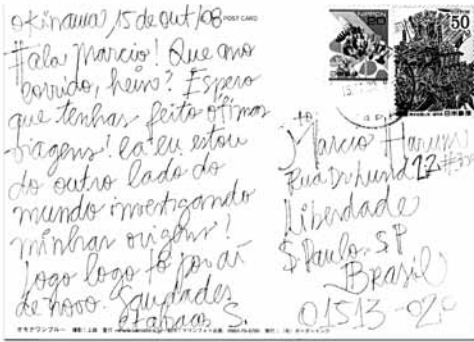 okinawa 15 de out/08
POST CARD
Fala Marcio! Que ano
corrido, hein? Espero
que tenhas feito ótimas
viagens! Cá eu estou
do outro lado do
mundo investigando
minhas origens!
Logo logo tô por aí
de novo. Saudades
S.
20
50
to
Marcio
Rua Dr Lund
Liberdade
S. Paulo. SP
BRASIL
01513-020